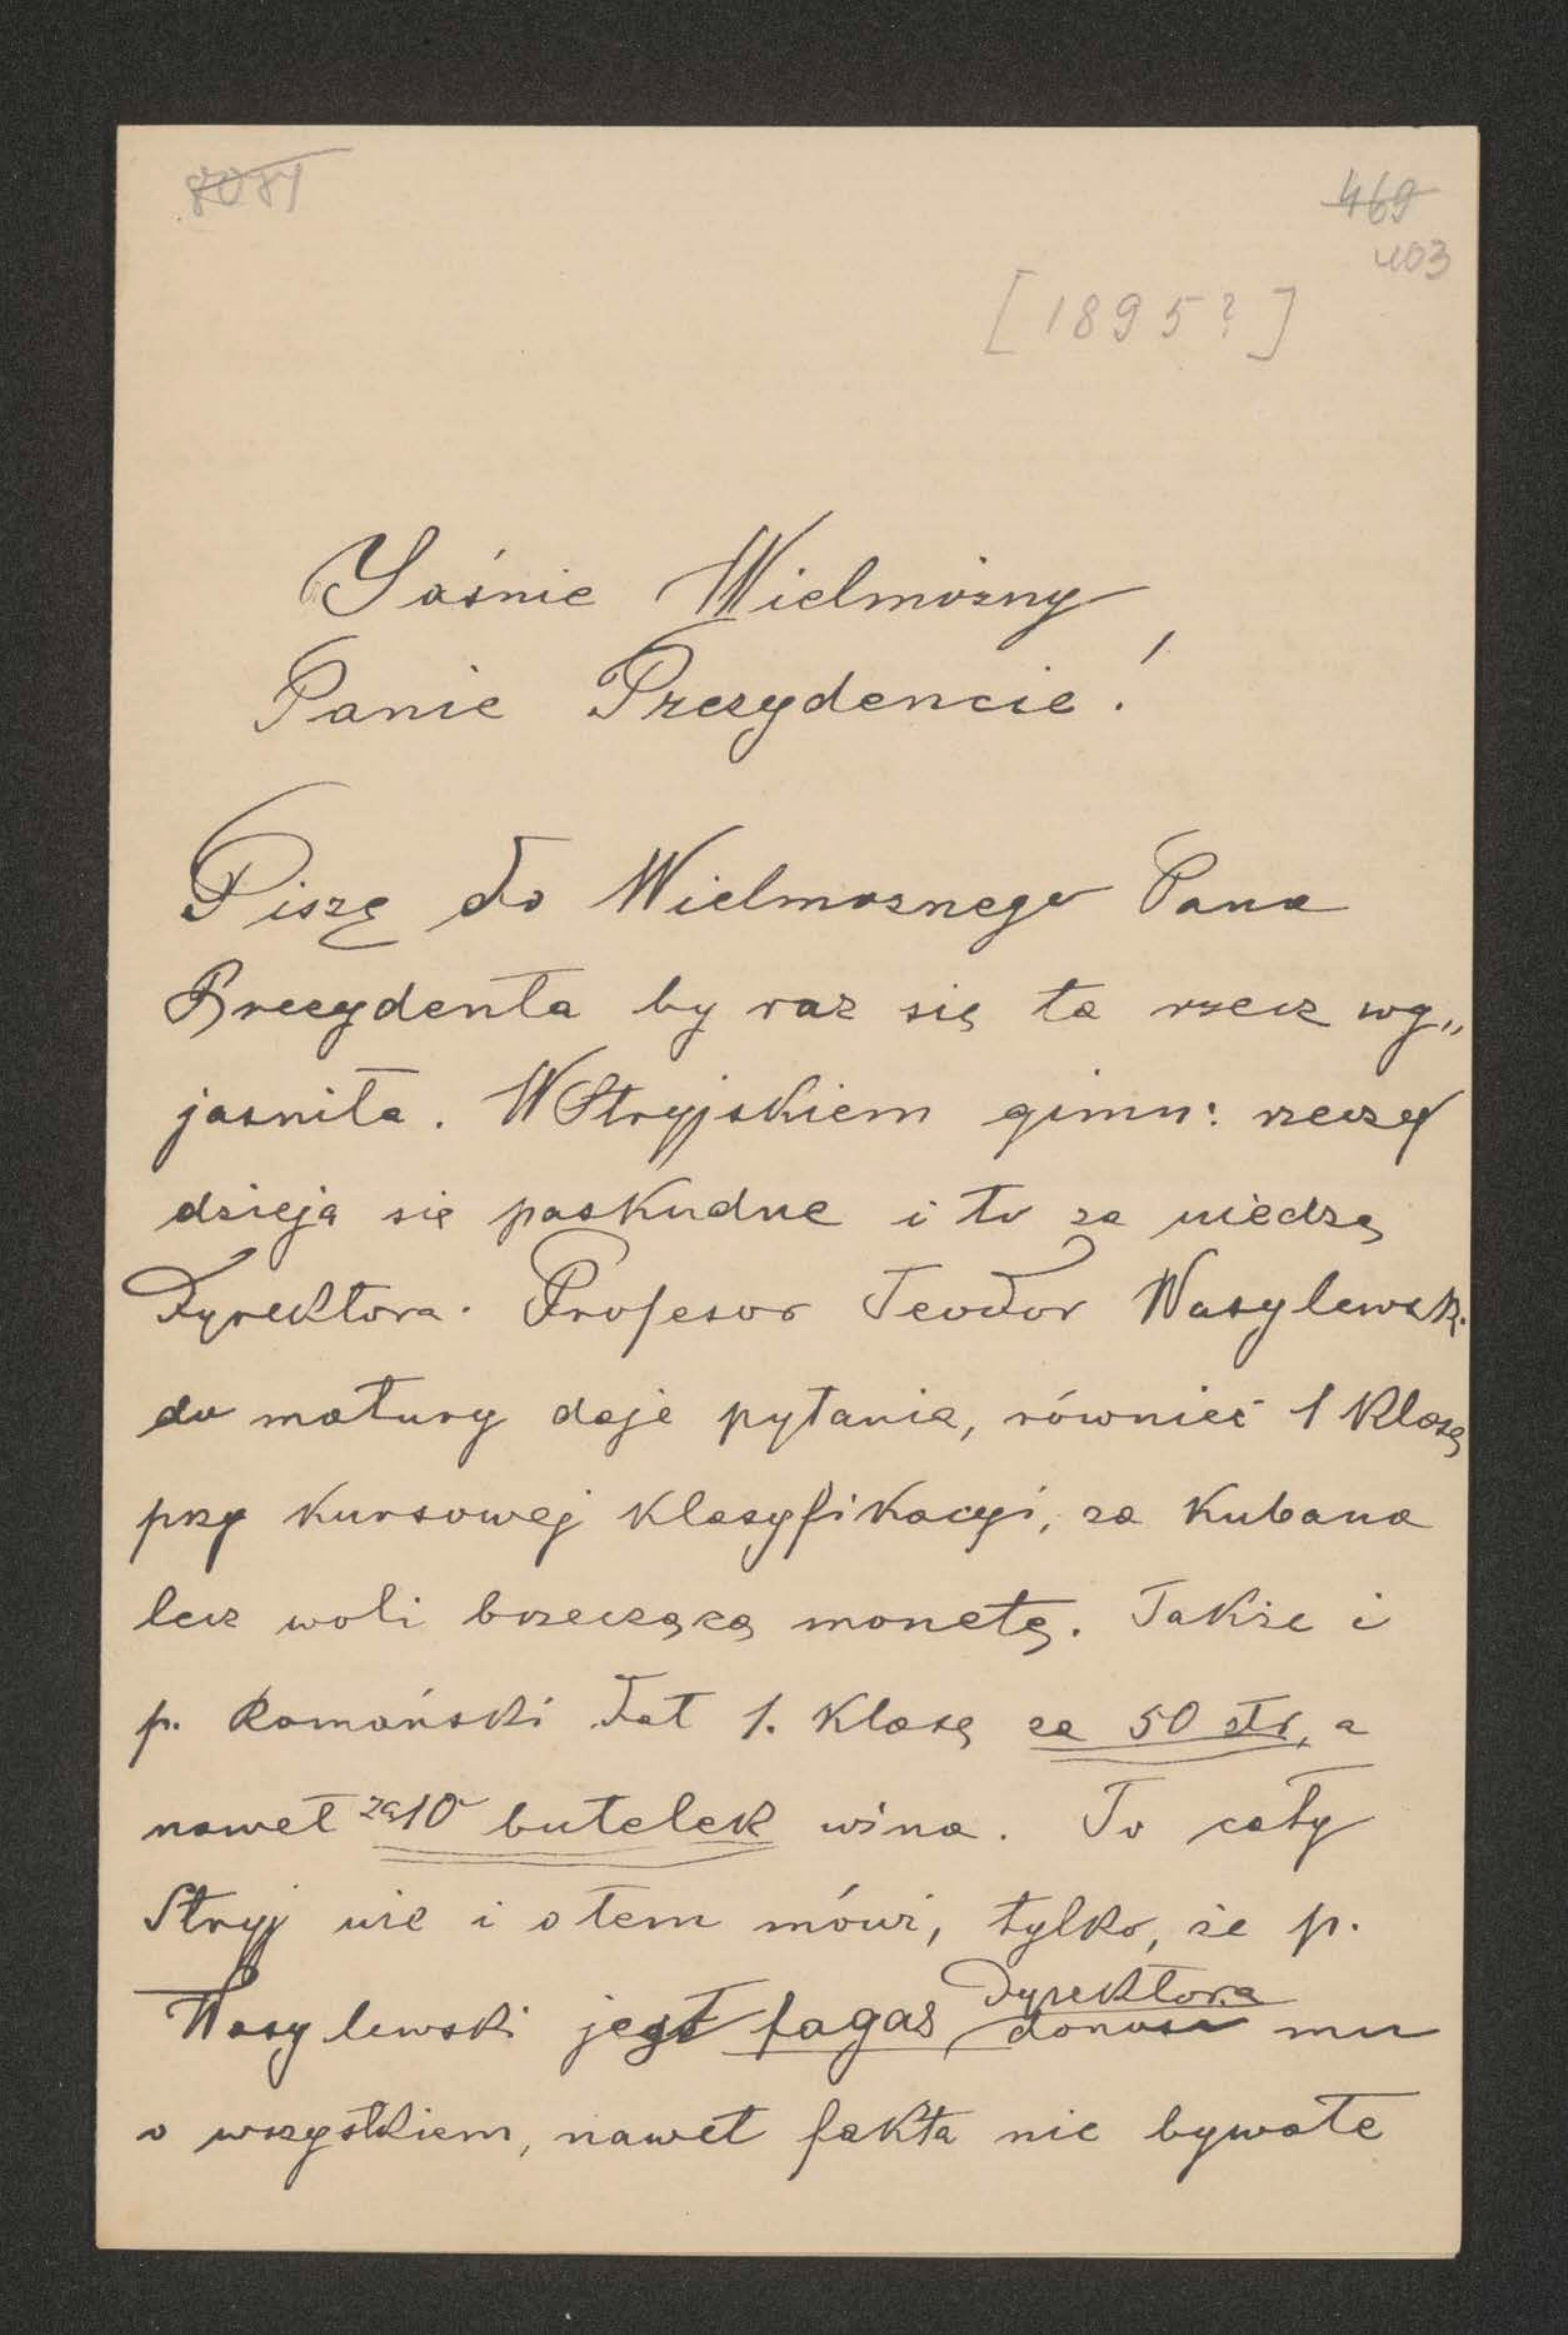 8081
469
403
[1895?]
Jaśnie Wielmożny
Panie Prezydencie!
Piszę do Wielmoznego Pana
Prezydenta by raz się ta rzecz wy„
jasniła. W Stryjskiem gimn: rzeczy
dzieja się paskudne i to za wiedzą
Dyrektora. Profesor Teodor Wasylewsk.
do matury daje pytania, również 1 klasę
przy kursowej klasyfikacyi, za kubana
lecz woli brzeczącą monetę. Także i
p. Romański dał 1. klasę za 50 złr, a
nawet za 10 butelek wina. To cały
Stryj wie i o tem mówi, tylko, że p.
Wasylewski jest fagas Dyrektora donosi mu
o wszystkiem, nawet fakta nie bywałe